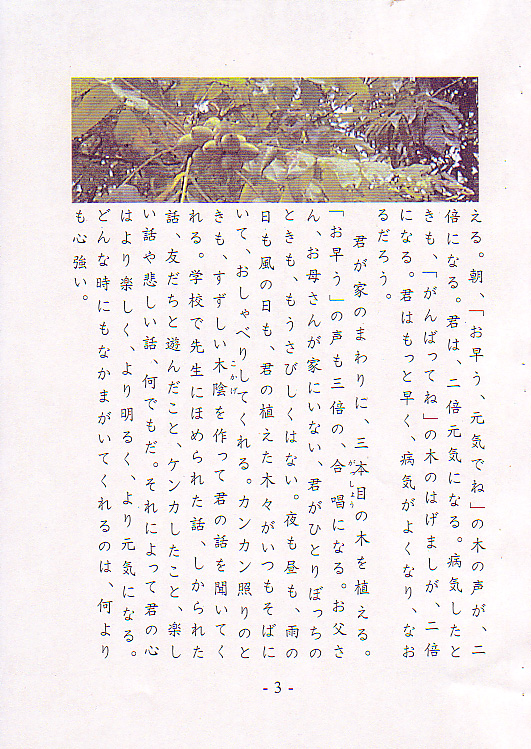 える。朝、「お早う、元気でね」の木の声が、二
倍になる。君は、二倍元気になる。病気したと
きも、「がんばってね」の木のはげましが、二倍
になる。君はもっと早く、病気がよくなり、なお
るだろう。
君が家のまわりに、三本目の木を植える。
「お早う」の声も三倍の、合唱になる。お父さ
がっしょう
ん、お母さんが家にいない、君がひとりぼっちの
ときも、もうさびしくはない。夜も昼も、雨の
日も風の日も、君の植えた木々がいつもそばに
いて、おしゃべりしてくれる。カンカン照りのと
きも、すずしい木陰を作って君の話を聞いてく
こかげ
れる。学校で先生にほめられた話、しかられた
話、友だちと遊んだこと、ケンカしたこと、楽し
い話や悲しい話、何でもだ。それによって君の心
はより楽しく、より明るく、より元気になる。
どんな時にもなかまがいてくれるのは、何より
も心強い。
- 3 -